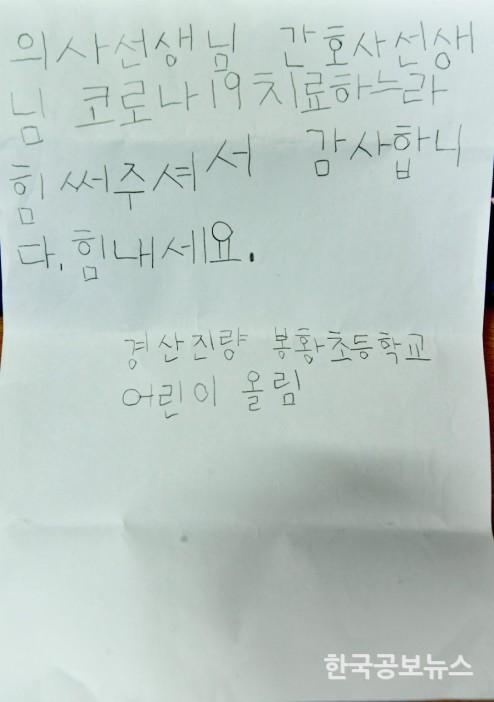 의사선생님 간호사선생
님 코로나19치료하느라
힘써주셔서 감사합니
다. 힘내세요.
경산진량 봉황초등학교
어린이 올림
한국공보뉴스